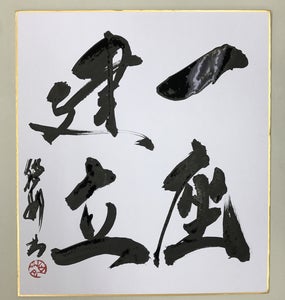 一座
建立